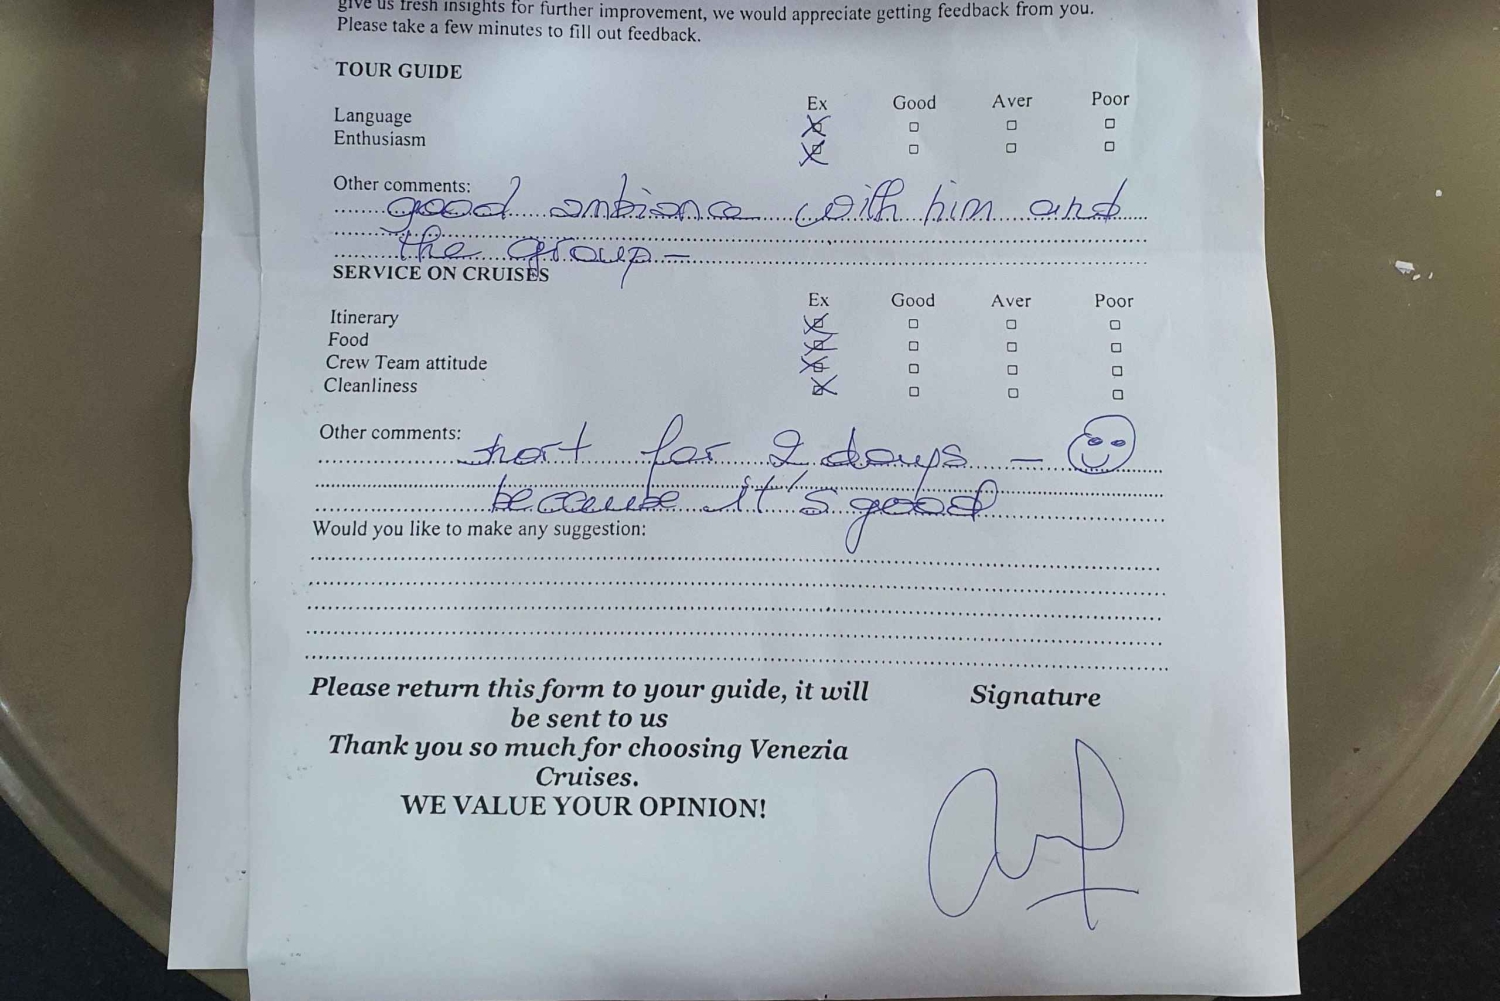 give us fresh insights for further improvement, we would appreciate getting feedback from you.
Please take a few minutes to fill out feedback.
TOUR GUIDE
Ex Good Aver Poor
Language
Enthusiasm
Other comments:
good ambiance with him and
the group -
SERVICE ON CRUISES
Ex Good Aver Poor
Itinerary
Food
Crew Team attitude
Cleanliness
Other comments:
short for 2 days -
because it's good
Would you like to make any suggestion:
Please return this form to your guide, it will
be sent to us
Thank you so much for choosing Venezia
Cruises.
WE VALUE YOUR OPINION!
Signature